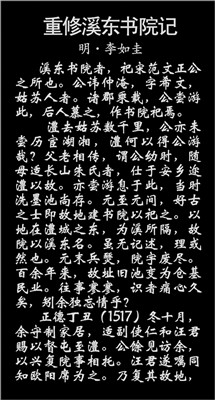 重修溪东书院记
明·李如圭
溪东书院者，祀宋范文正公
之所也。公讳仲淹，字希文，
姑苏人者。诸郡乘载，公尝游
此，后人墓之，作书院祀焉。
澧去姑苏数千里，公亦未
尝历官湖湘，澧何以得公游
哉？父老相传，谓公幼时，随
母适长山朱氏者，仕于安乡迨
澧以故。亦尝游息于此，当时
洗墨池尚存。元至元间，好古
之士即故地建书院以祀之。以
地在澧城之东，为溪所隔，故
院以溪东名。虽无记述，理或
然也。元末兵燹，院宇废尽。
百余年来，故址旧池变为仓基
民业。往事寒寒，识者痛心久
矣，矧余独忘情乎？
正德丁丑（1517）冬十月，
余守制家居，适副使仁和汪君
赐以督屯至澧。公馀见访余，
以兴复院事相托。汪君遂嘱同
知欧阳席为之。乃复其故地，